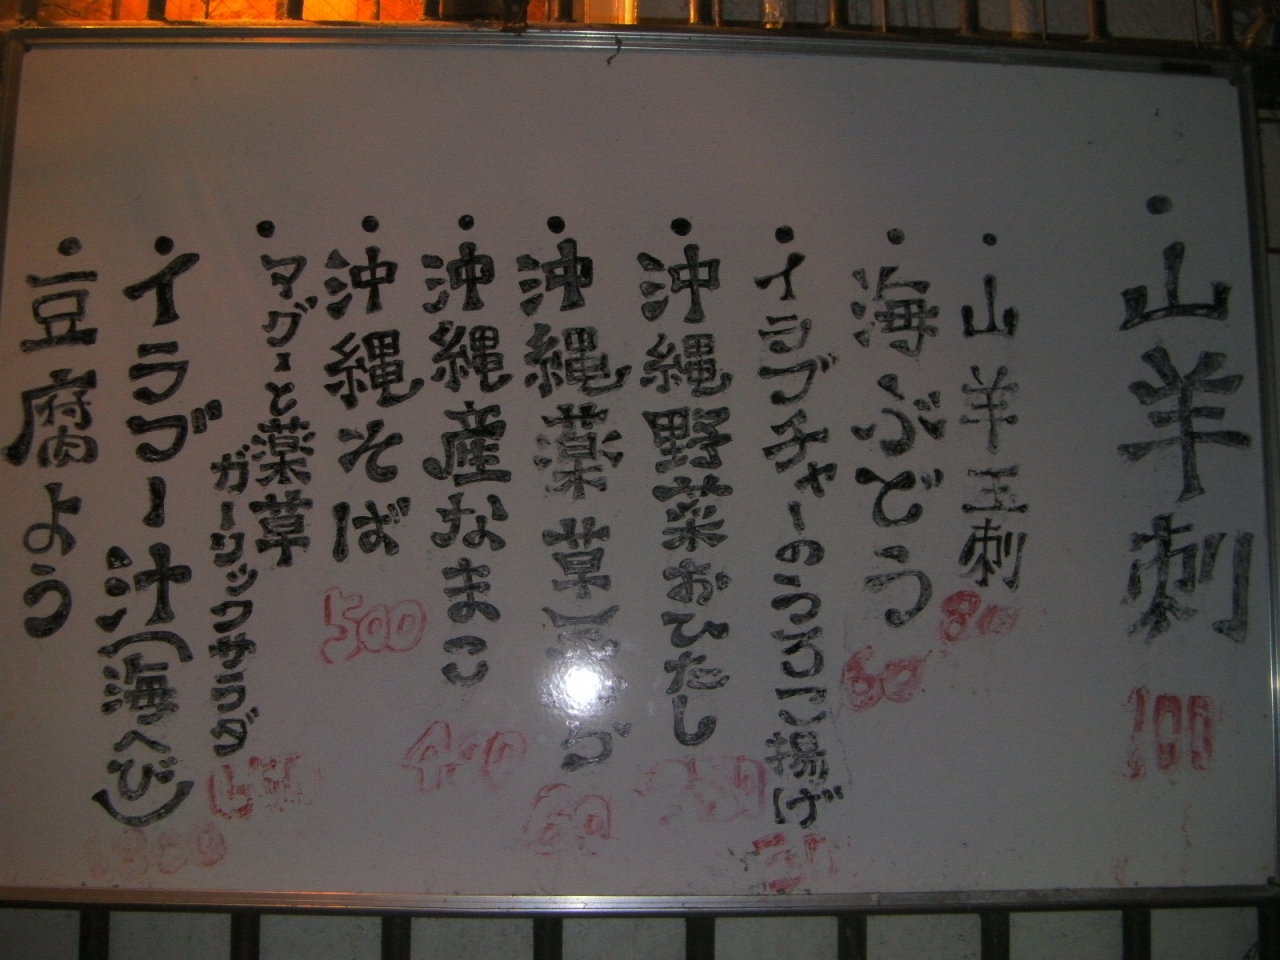 ・山羊刺
100
・山羊玉刺
80
・海ぶどう
60
・イラブチャーのうろこ揚げ
・沖縄野菜おひたし
・沖縄薬草
60
・沖縄産なまこ
400
・沖縄そば
500
・マグーと薬草
ガーリックサラダ
・イラブー汁(海へび)
・豆腐よう